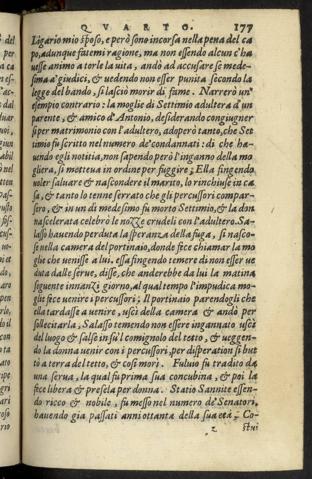 QVARTO. 177
Ligario mio sposo, e però sono incorsa nella pena del ca
po, adunque fatemi ragione, ma non essendo alcun c'ha
uesse animo a torle la uita, andò ad accusare se mede-
sima a' giudici, & uedendo non esser punita secondo la
legge del bando, si lasciò morir di fame. Narrerò un'
esempio contrario: la moglie di Settimio adultera d'un
parente, & amico d'Antonio, desiderando congiugner
si per matrimonio con l'adultero, adoperò tanto, che Set
timio fu scritto nel numero de' condannati: di che ha-
uendo egli notitia, non sapendo però l'inganno della mo
gliera, si metteua in ordine per fuggire; Ella fingendo
uoler saluare & nascondere il marito, lo rinchiuse in ca
sa, & tanto lo tenne serrato che gli percussori compar-
sero, & in un di medesimo fu morto Settimio, & la don
na scelerata celebrò le nozze crudeli con l'adultero. Sa-
lasso hauendo perduta la speranza della fuga, si nasco-
se nella camera del portinaio, donde fece chiamar la mo
glie che uenisse a lui, essa fingendo temere di non esser ue
duta dalle serue, disse, che anderebbe da lui la matina
seguente innanzi giorno, al qual tempo l'impudica mo-
glie fece uenire i percussori; Il portinaio parendogli che
ella tardasse a uenire, uscì della camera & andò per
sollecitarla, Salasso temendo non essere ingannato uscì
del luogo & salse in su'l comignolo del tetto, & ueggen-
do la donna uenir con i percussori, per disperation si but
tò a terra del tetto, & così morì. Fuluio fu tradito da
una serua, la qual fu prima sua concubina, & poi la
fece libera & presela per donna. Statio Sannite essen-
do ricco & nobile, fu messo nel numero de' Senatori,
hauendo gia passati anni ottanta della sua età. Co-
z stui